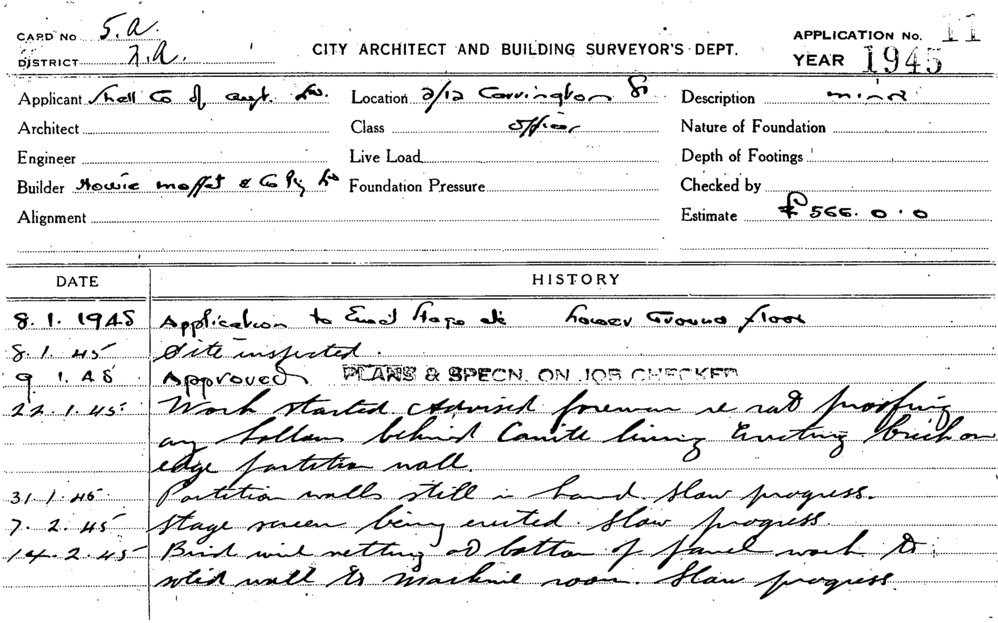 CARD No 5.A. APPLICATION No. 11
DISTRICT 7.A. CITY ARCHITECT AND BUILDING SURVEYOR'S DEPT. YEAR 1945
Applicant Shell Co of Aust. Ltd. Location 2/12 Carrington St Description minor
Architect Class offices Nature of Foundation
Engineer Live Load Depth of Footings
Builder Howie Moffat & Co Pty Ltd Foundation Pressure Checked by
Alignment Estimate £566.0.0
DATE HISTORY
8.1.1945 Application to Erect Stage etc Lower Ground floor
8.1.45 Site inspected.
9.1.45 Approved PLANS & SPECN. ON JOB CHECKED
22.1.45 Work started. Advised foreman re rat proofing
any hollows behind Canite lining. Erecting brick on
edge partition wall.
31.1.45 Partition walls still in hand. Slow progress.
7.2.45 Stage screen being erected. Slow progress.
14.2.45 Bird wire netting at bottom of panel work to
solid wall to machine room. Slow progress.